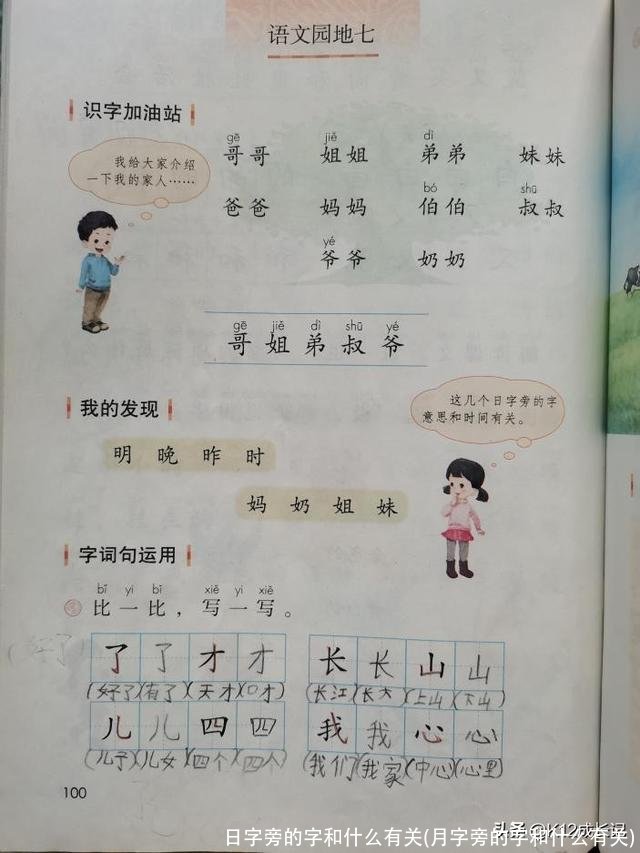 语文园地七
识字加油站
我给大家介绍
一下我的家人……
gē jiě dì
哥哥 姐姐 弟弟 妹妹
bó shū
爸爸 妈妈 伯伯 叔叔
yé
爷爷 奶奶
gē jiě dì shū yé
哥 姐 弟 叔 爷
我的发现
这几个日字旁的字
意思和时间有关。
明 晚 昨 时
妈 奶 姐 妹
字词句运用
bǐ yi bǐ xiě yi xiě
比一比，写一写。
(好了)
了 了 才 才 长 长 山 山
(好了)(有了)(天才)(口才) (长江)(长大)(上山)(下山)
儿 儿 四 四 我 我 心 心
(儿子)(儿女)(四个)(四人) (我们)(我家)(中心)(心里)
100
头条@K12成长记
日字旁的字和什么有关(月字旁的字和什么有关)